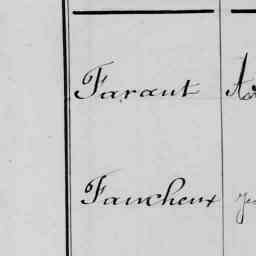 Faraut
Faucheux